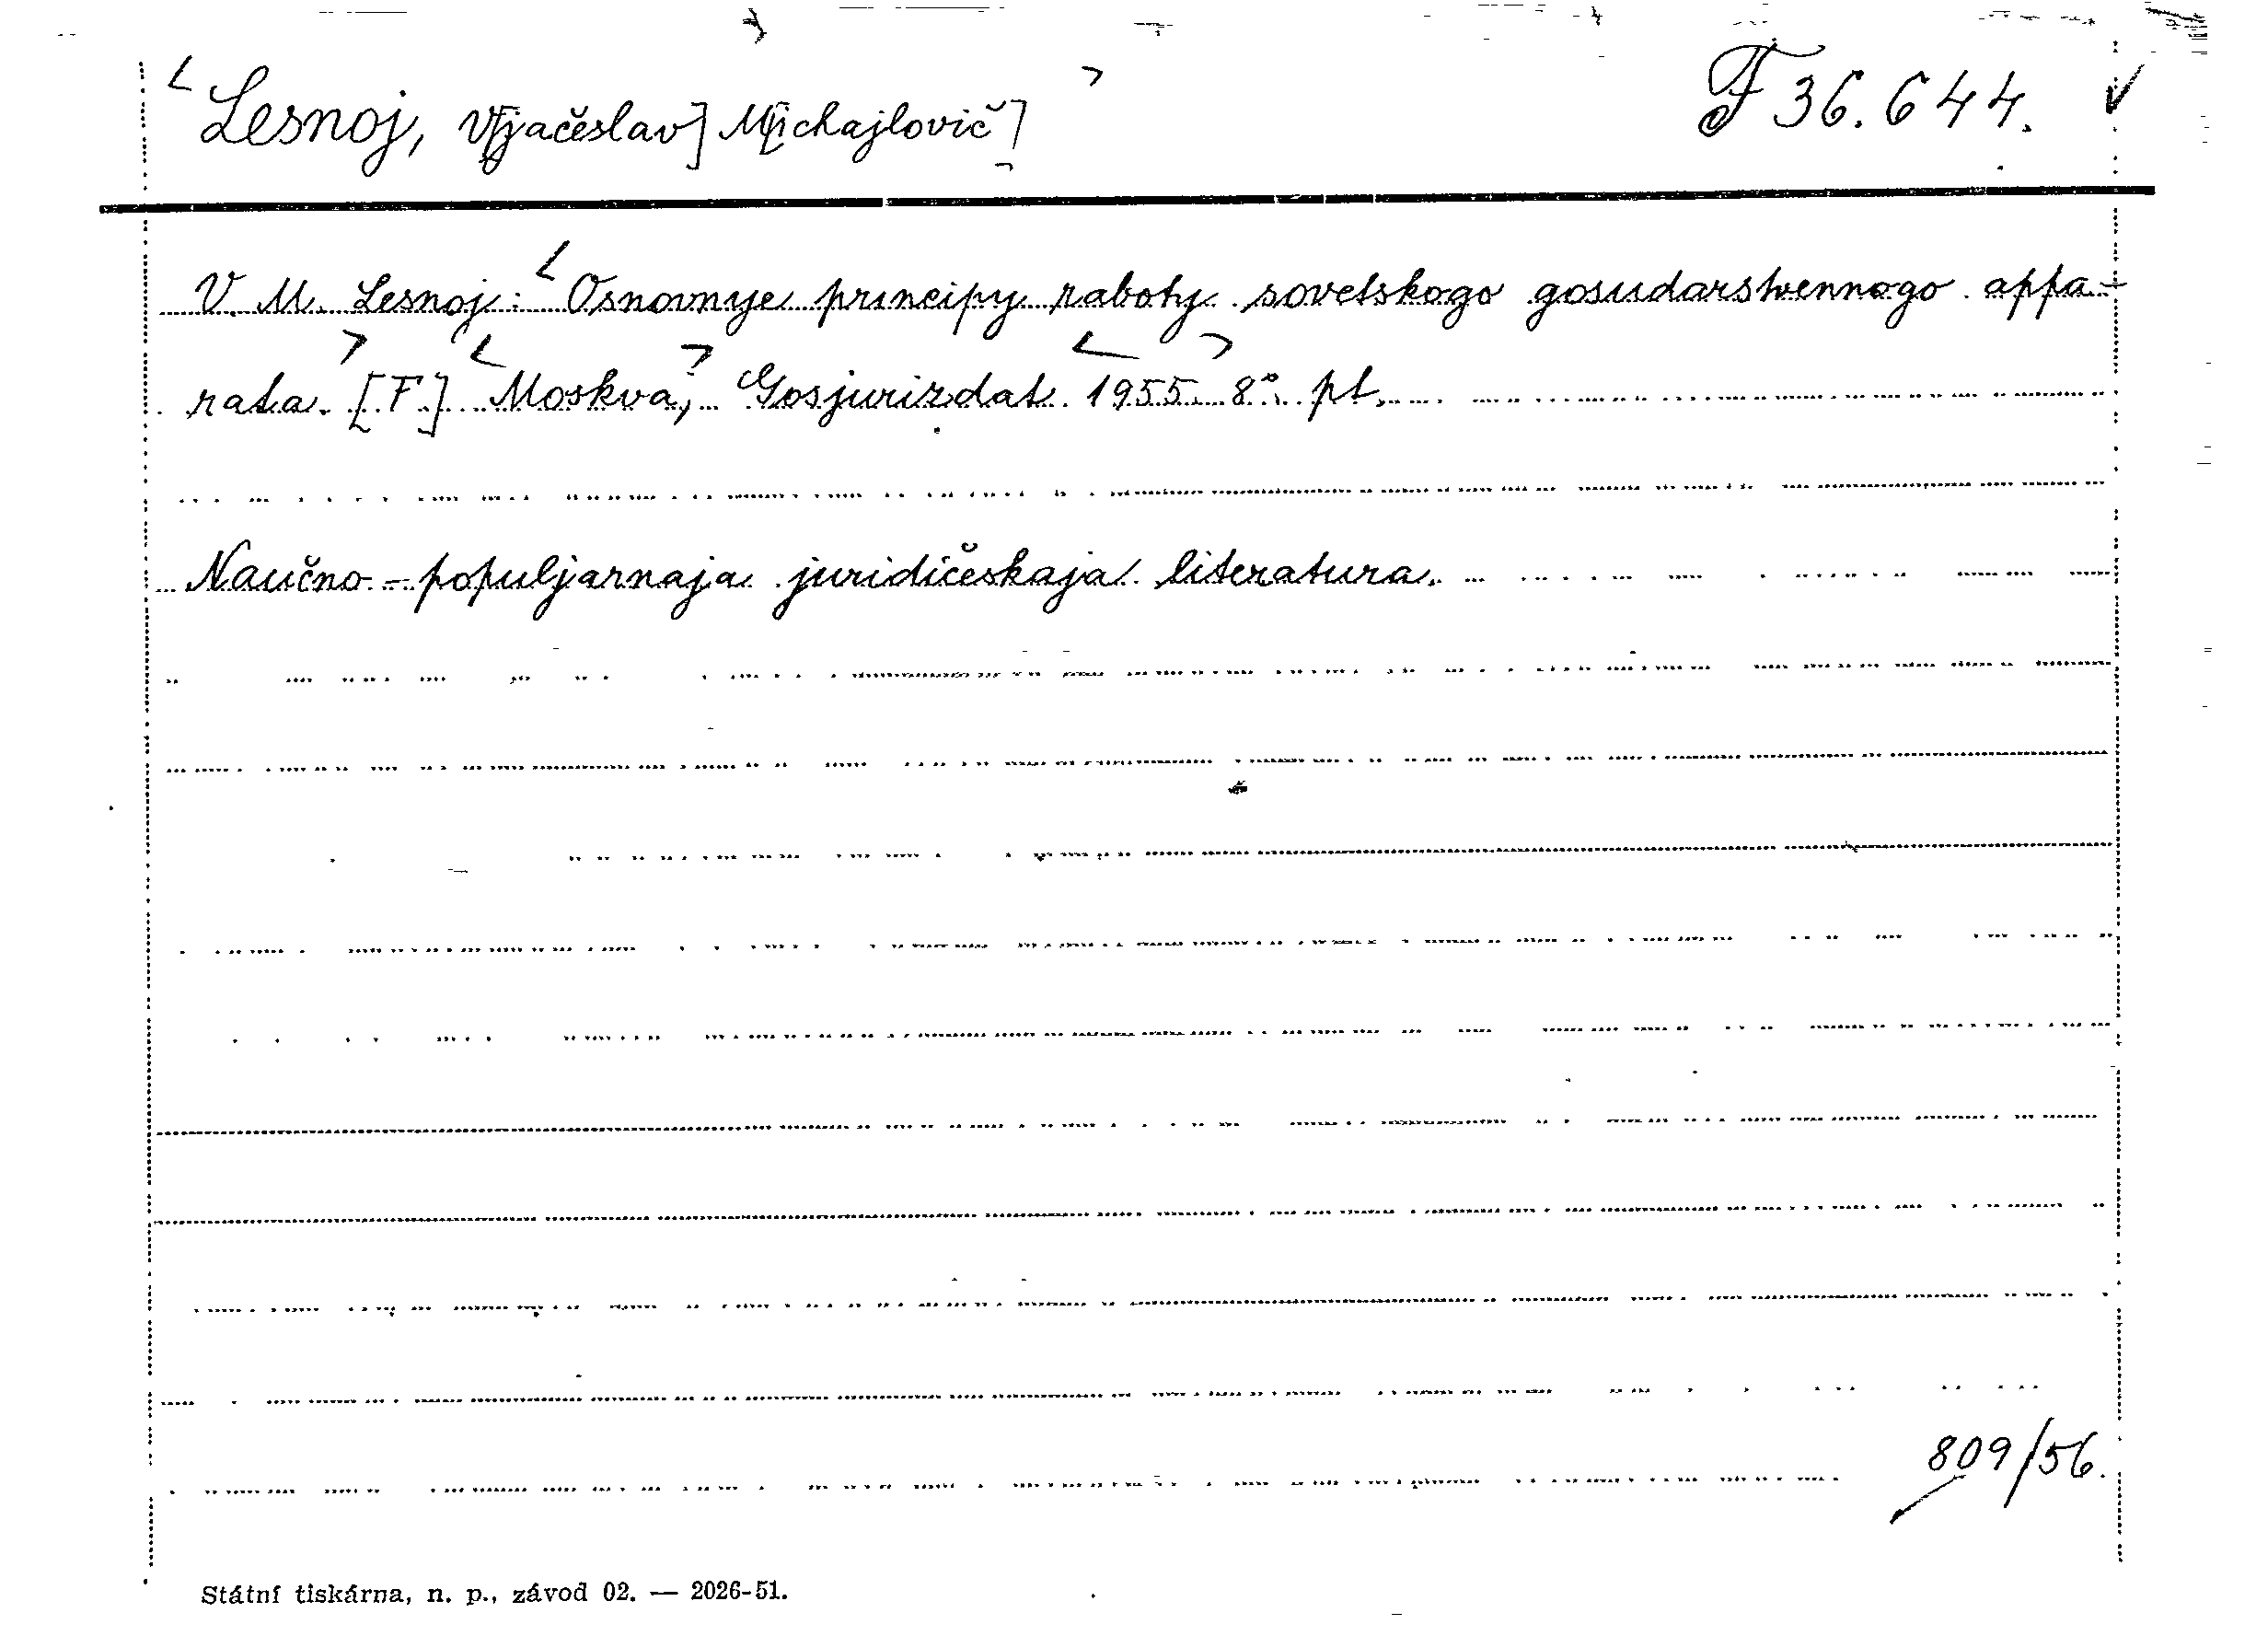 <Lesnoj, V[jačeslav] M[ichajlovič]> F 36.644. ✓
V. M. Lesnoj: <Osnovnye principy raboty sovetskogo gosudarstvennogo appa-
rata.> [F] <Moskva,> Gosjurizdat <1955.> 8°. pt.
Naučno-populjarnaja juridičeskaja literatura.
809/56.
Státní tiskárna, n. p., závod 02. — 2026-51.